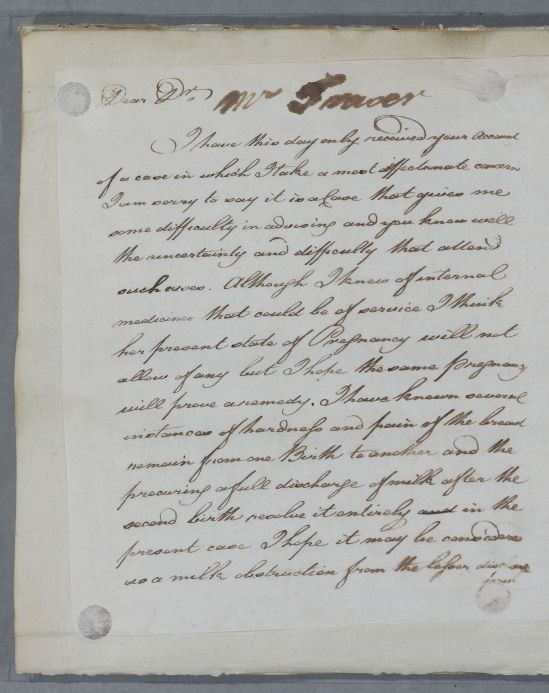 Dear Dr.
Mr Frawer
I have this day only received your Account
of a case in which I take a most affectionate concern
I am sorry to say it is a Case that gives me
some difficulty in advising and you know well
the uncertainty and difficulty that attend
such cases. Although I knew of internal
medicines that could be of service I think
her present state of Pregnancy will not
allow of any but I hope the same pregnancy
will prove a remedy. I have known several
instances of hardness and pain of the breast
remain from one Birth to another and the
procuring a full discharge of milk after the
second birth resolve it entirely and in the
present case I hope it may be considered
as a milk obstruction from the
from